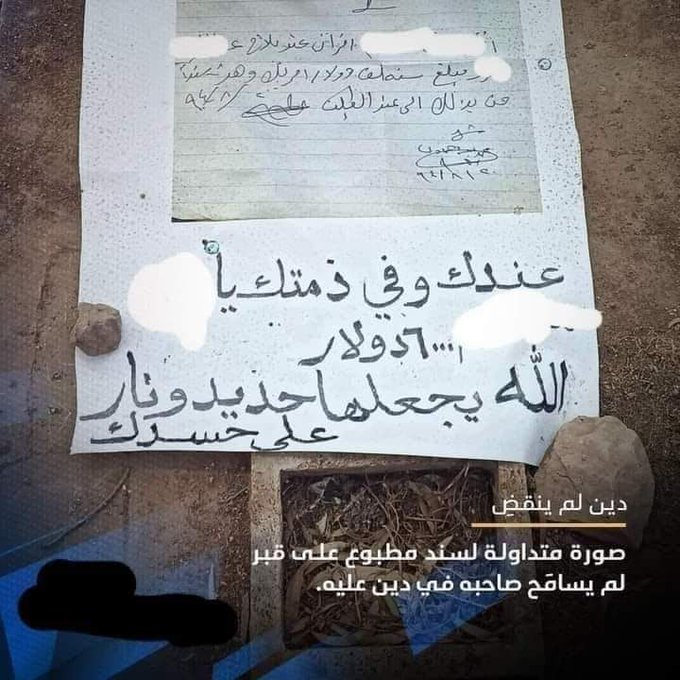 مبلغ ستة الف دولار امريكي وهذا سند
من بذلك الى عند الطلب
عندك وفي ذمتك يا
٦٠٠٠ دولار
الله يجعلها حديد ونار
على جسدك
دين لم ينقضِ
صورة متداولة لسند مطبوع على قبر
لم يسامَح صاحبه في دين عليه.